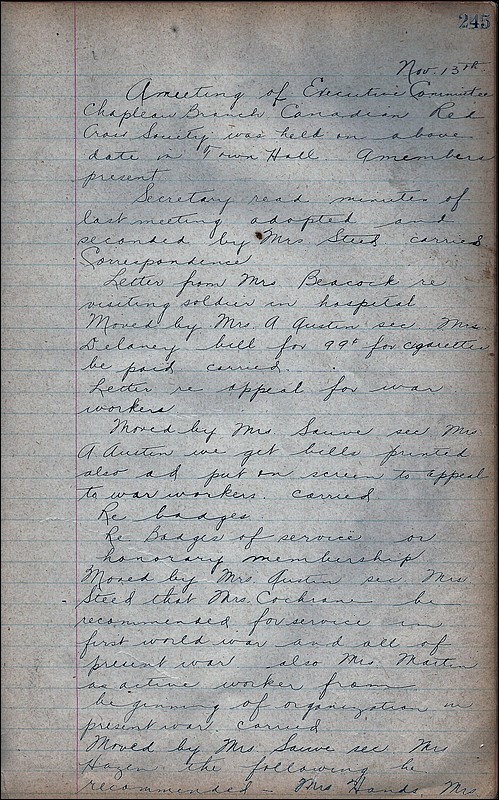 245
Nov. 13th
A meeting of Executive Committee
Chapleau Branch Canadian Red
Cross Society was held on above
date in Town Hall. 9 members
present
Secretary read minutes of
last meeting adopted and
seconded by Mrs. Steed carried
Correspondence
Letter from Mrs Beacock re
visiting soldier in hospital
Moved by Mrs. A Austin sec Mrs.
Delaney bill for 99¢ for cigarettes
be paid carried.
Letter re appeal for war
workers
Moved by Mrs Sauve sec Mrs
A Austin we get bills printed
also ad put on screen to appeal
to war workers. carried
Re badges
Re Badges of service or
honorary membership
Moved by Mrs. Austin sec. Mrs.
Steed that Mrs. Cochrane be
recommended for service in
first world war and all of
present war also Mrs Martin
as active worker from
beginning of organization in
present war. carried
Moved by Mrs. Sauve sec. Mrs
Hazen the following be
recommended - Mrs Hands, Mrs.